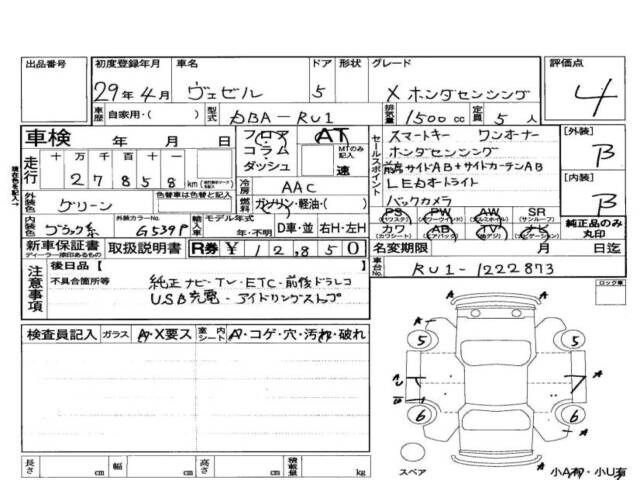 出品番号 初度登録年月 車名 ドア 形状 グレード 評価点
29年4月 ヴェゼル 5 X ホンダセンシング 4
車歴 自家用・( ) 型式 DBA-RU1 排気量 1500 cc 定員 5 人
車検 年 月 日 フロア AT セールスポイント スマートキー ワンオーナー [外装]
コラム MTのみ記入 ホンダセンシング B
ダッシュ 速 前席サイドAB+サイドカーテンAB
走行 十 万 千 百 十 一 [内装]
2 7 8 5 8 km 冷房 AAC LEDオートライト B
外装色 グリーン 色替車は色替と記入 燃料 ガソリン・軽油・( ) バックカメラ
PS PW AW SR
(パワステ) (パワーウィンド) (アルミホイル) (サンルーフ)
内装色 ブラック系 外装カラーNo. G539P 輸入車 モデル年式 年・不明 D車・並 右H・左H カワ AB TV ナビ 純正品のみ丸印
(カワシート) (エアバッグ) (地デジ) (ナビゲーション)
新車保証書 取扱説明書 R券 ¥ 1 2,8 5 0 名変期限 月 日迄
ディーラー捺印あるもの
車台No. RU1-1222873
注意事項 後日品 [ ] ロック車
不具合箇所等 純正ナビ・TV・ETC・前後ドラレコ
USB充電・アイドリングストップ
検査員記入 ガラス A・X要ス 室内シート A・コゲ・穴・汚れ・破れ
A
5 5 A
A
U A
6 6
A
長さ cm 幅 cm 高さ cm 積載量 kg スペア 小A有・小U有